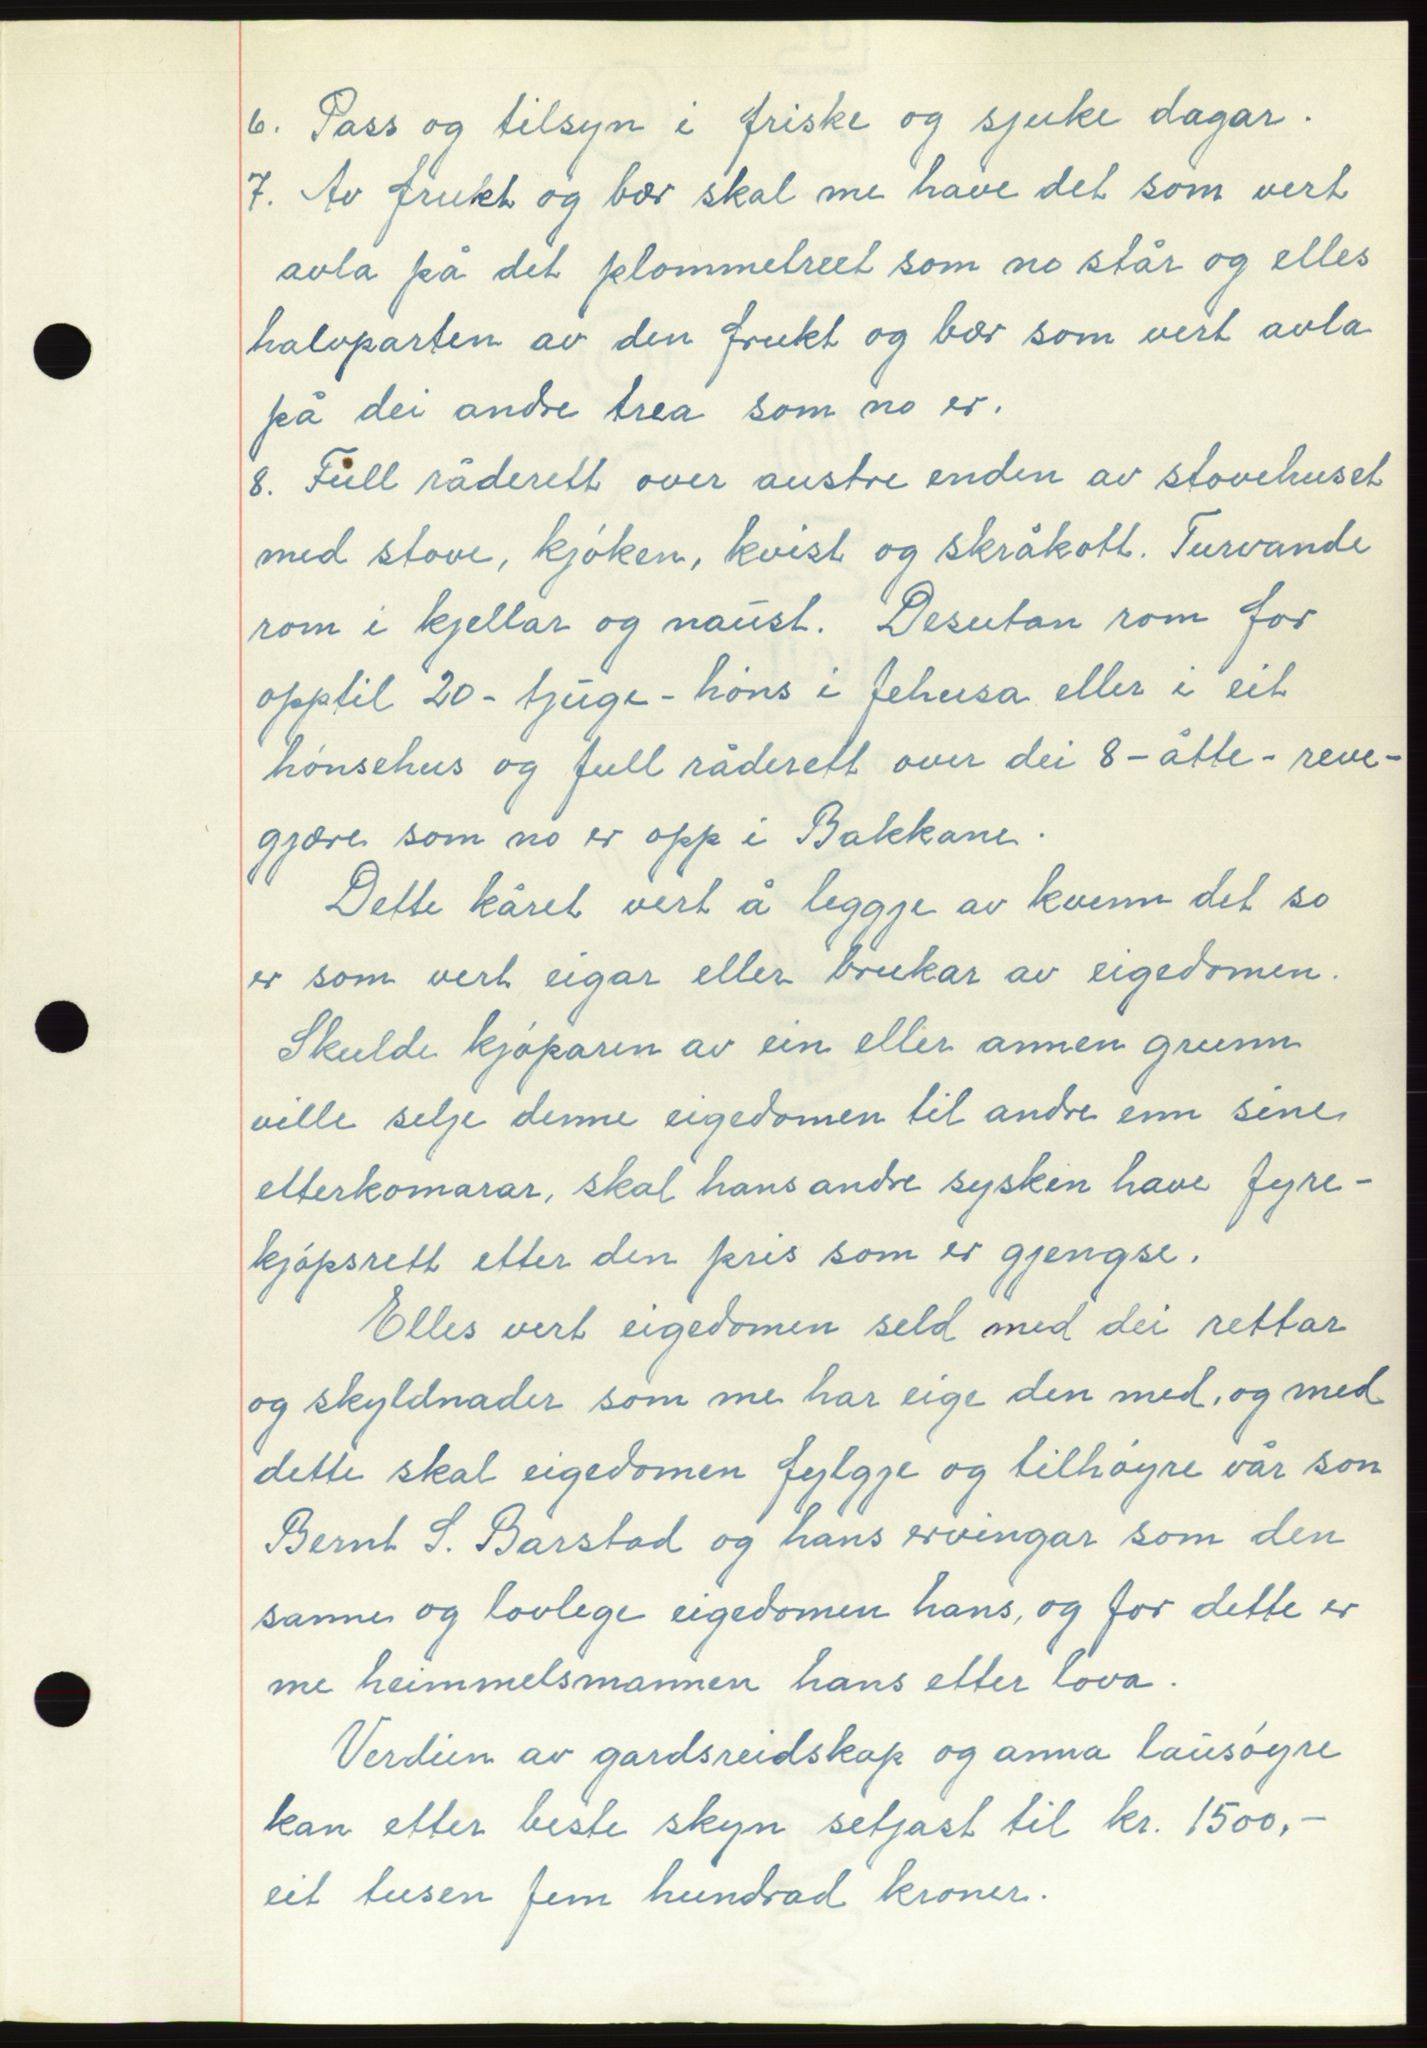 6. Pass og tilsyn i friske og sjuke dagar.
7. Av frukt og bær skal me have det som vert
avla på det plommetreet som no står og elles
halvparten av den frukt og bær som vert avla
på dei andre trea som no er.
8. Full råderett over austre enden av stovehuset
med stove, kjóken, kvist og skråkott. Turvande
rom i kjellar og naust. Desutan rom for
opptil 20 - tjuge - höns i fehusa eller i eit
hónsehus og full råderett over dei 8 - åtte - reve-
gjære som no er opp i Bakkane.
Dette kåret vert å leggje av kvenn det so
er som vert eigar eller brukar av eigedomen.
Skulde kjóparen av ein eller annen grunn
ville selje denne eigedomen til andre enn sine
etterkomarar, skal hans andre sysken have fyre-
kjópsrett etter den pris som er gjengse.
Elles vert eigedomen seld med dei rettar
og skyldnader som me har eige den med, og med
dette skal eigedomen fylgje og tilhóyre vår son
Bernt S. Barstad og hans ervingar som den
sanne og lovlege eigedomen hans, og for dette er
me heimmelsmannen hans etter lova.
Verdien av gardsreidskap og anna lausóyre
kan etter beste skyn setjast til kr. 1500,-
eit tusen fem hundrad kroner.